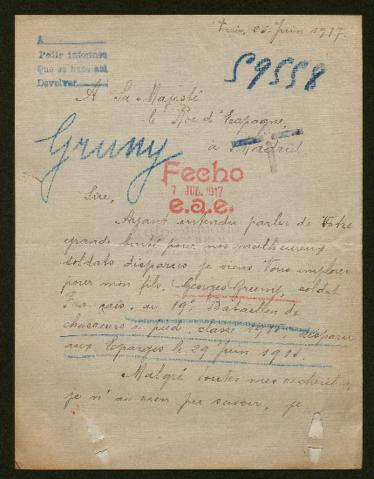 Juin 1917.
A
Pedir informes
Que se hace así
Devolver
59558
A Sa Majesté
le Roi d'Espagne,
à Madrid
Gruny
Fecho
7 JUL. 1917
e.a.e.
Sire,
Ayant entendu parler de Votre
grande bonté pour nos malheureux
soldats disparus je viens Vous implorer
pour mon fils, Georges Gruny, soldat
Français, au 19e Bataillon de
chasseurs à pied, classe disparu
aux Eparges le 29 Juin
Malgré toutes mes recherches,
je n'ai rien pu savoir, je